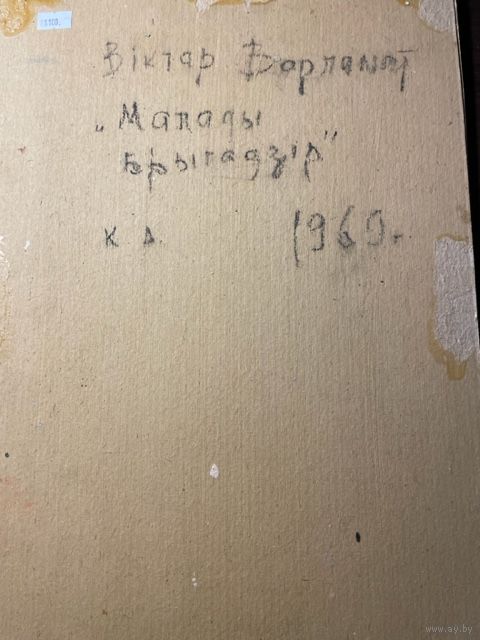 Віктар Варламаў
„Малады
Брыгадзір"
к а. 1969.
www.ay.by